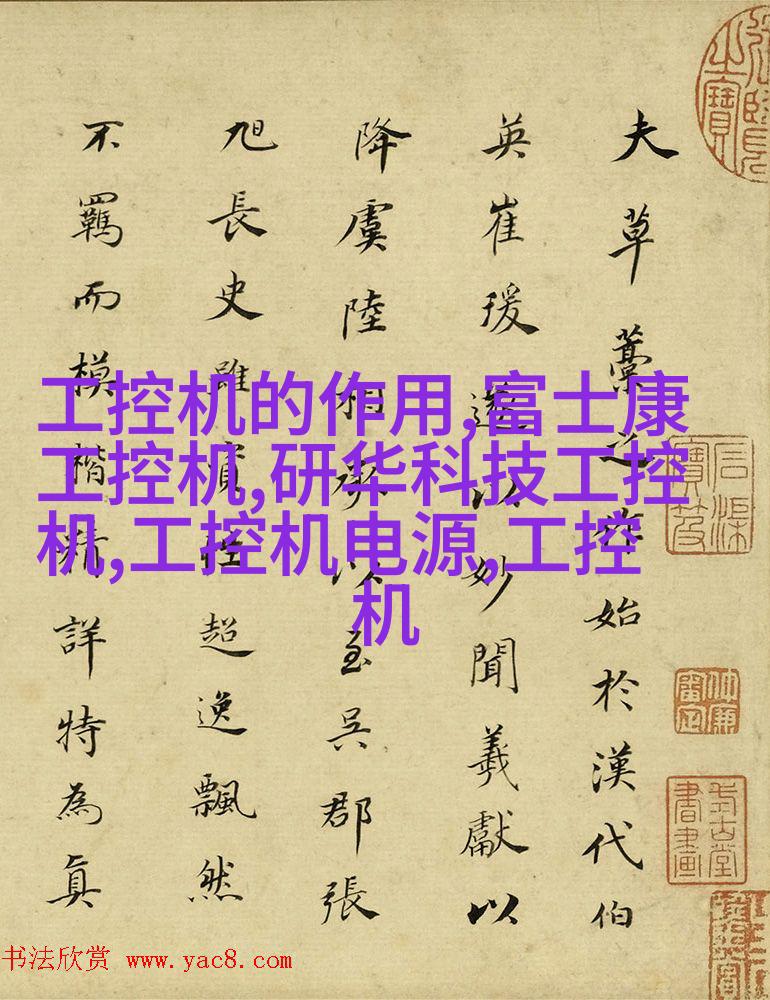 夫草藁之作始於漢代伯
英崔瑗以妙聞羲獻以
降虞陸相承以至吳郡張
旭長史雖性超逸飄然
不羈而模楷精詳特為真
工控机的作用,富士康
工控机,研华科技工控
机,工控机电源,工控
机
书法欣赏 www.yac8.com